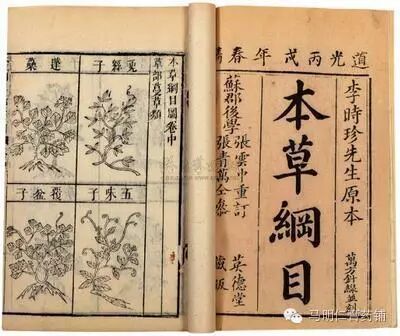 道光丙戌年春
李時珍先生原本
本草綱目
萬方針線並刻
蘇郡後學
張雲中重訂
張青萬仝參
英德堂
藏板
本草綱目圖卷中
草部蔓草類
五味子
覆盆子
马明仁膏药铺